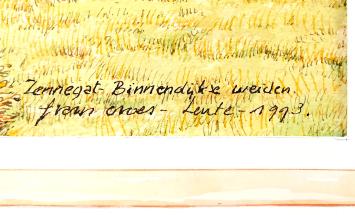 Zennegat - Binnendijkse weiden.
fran croes - Lente - 1993.